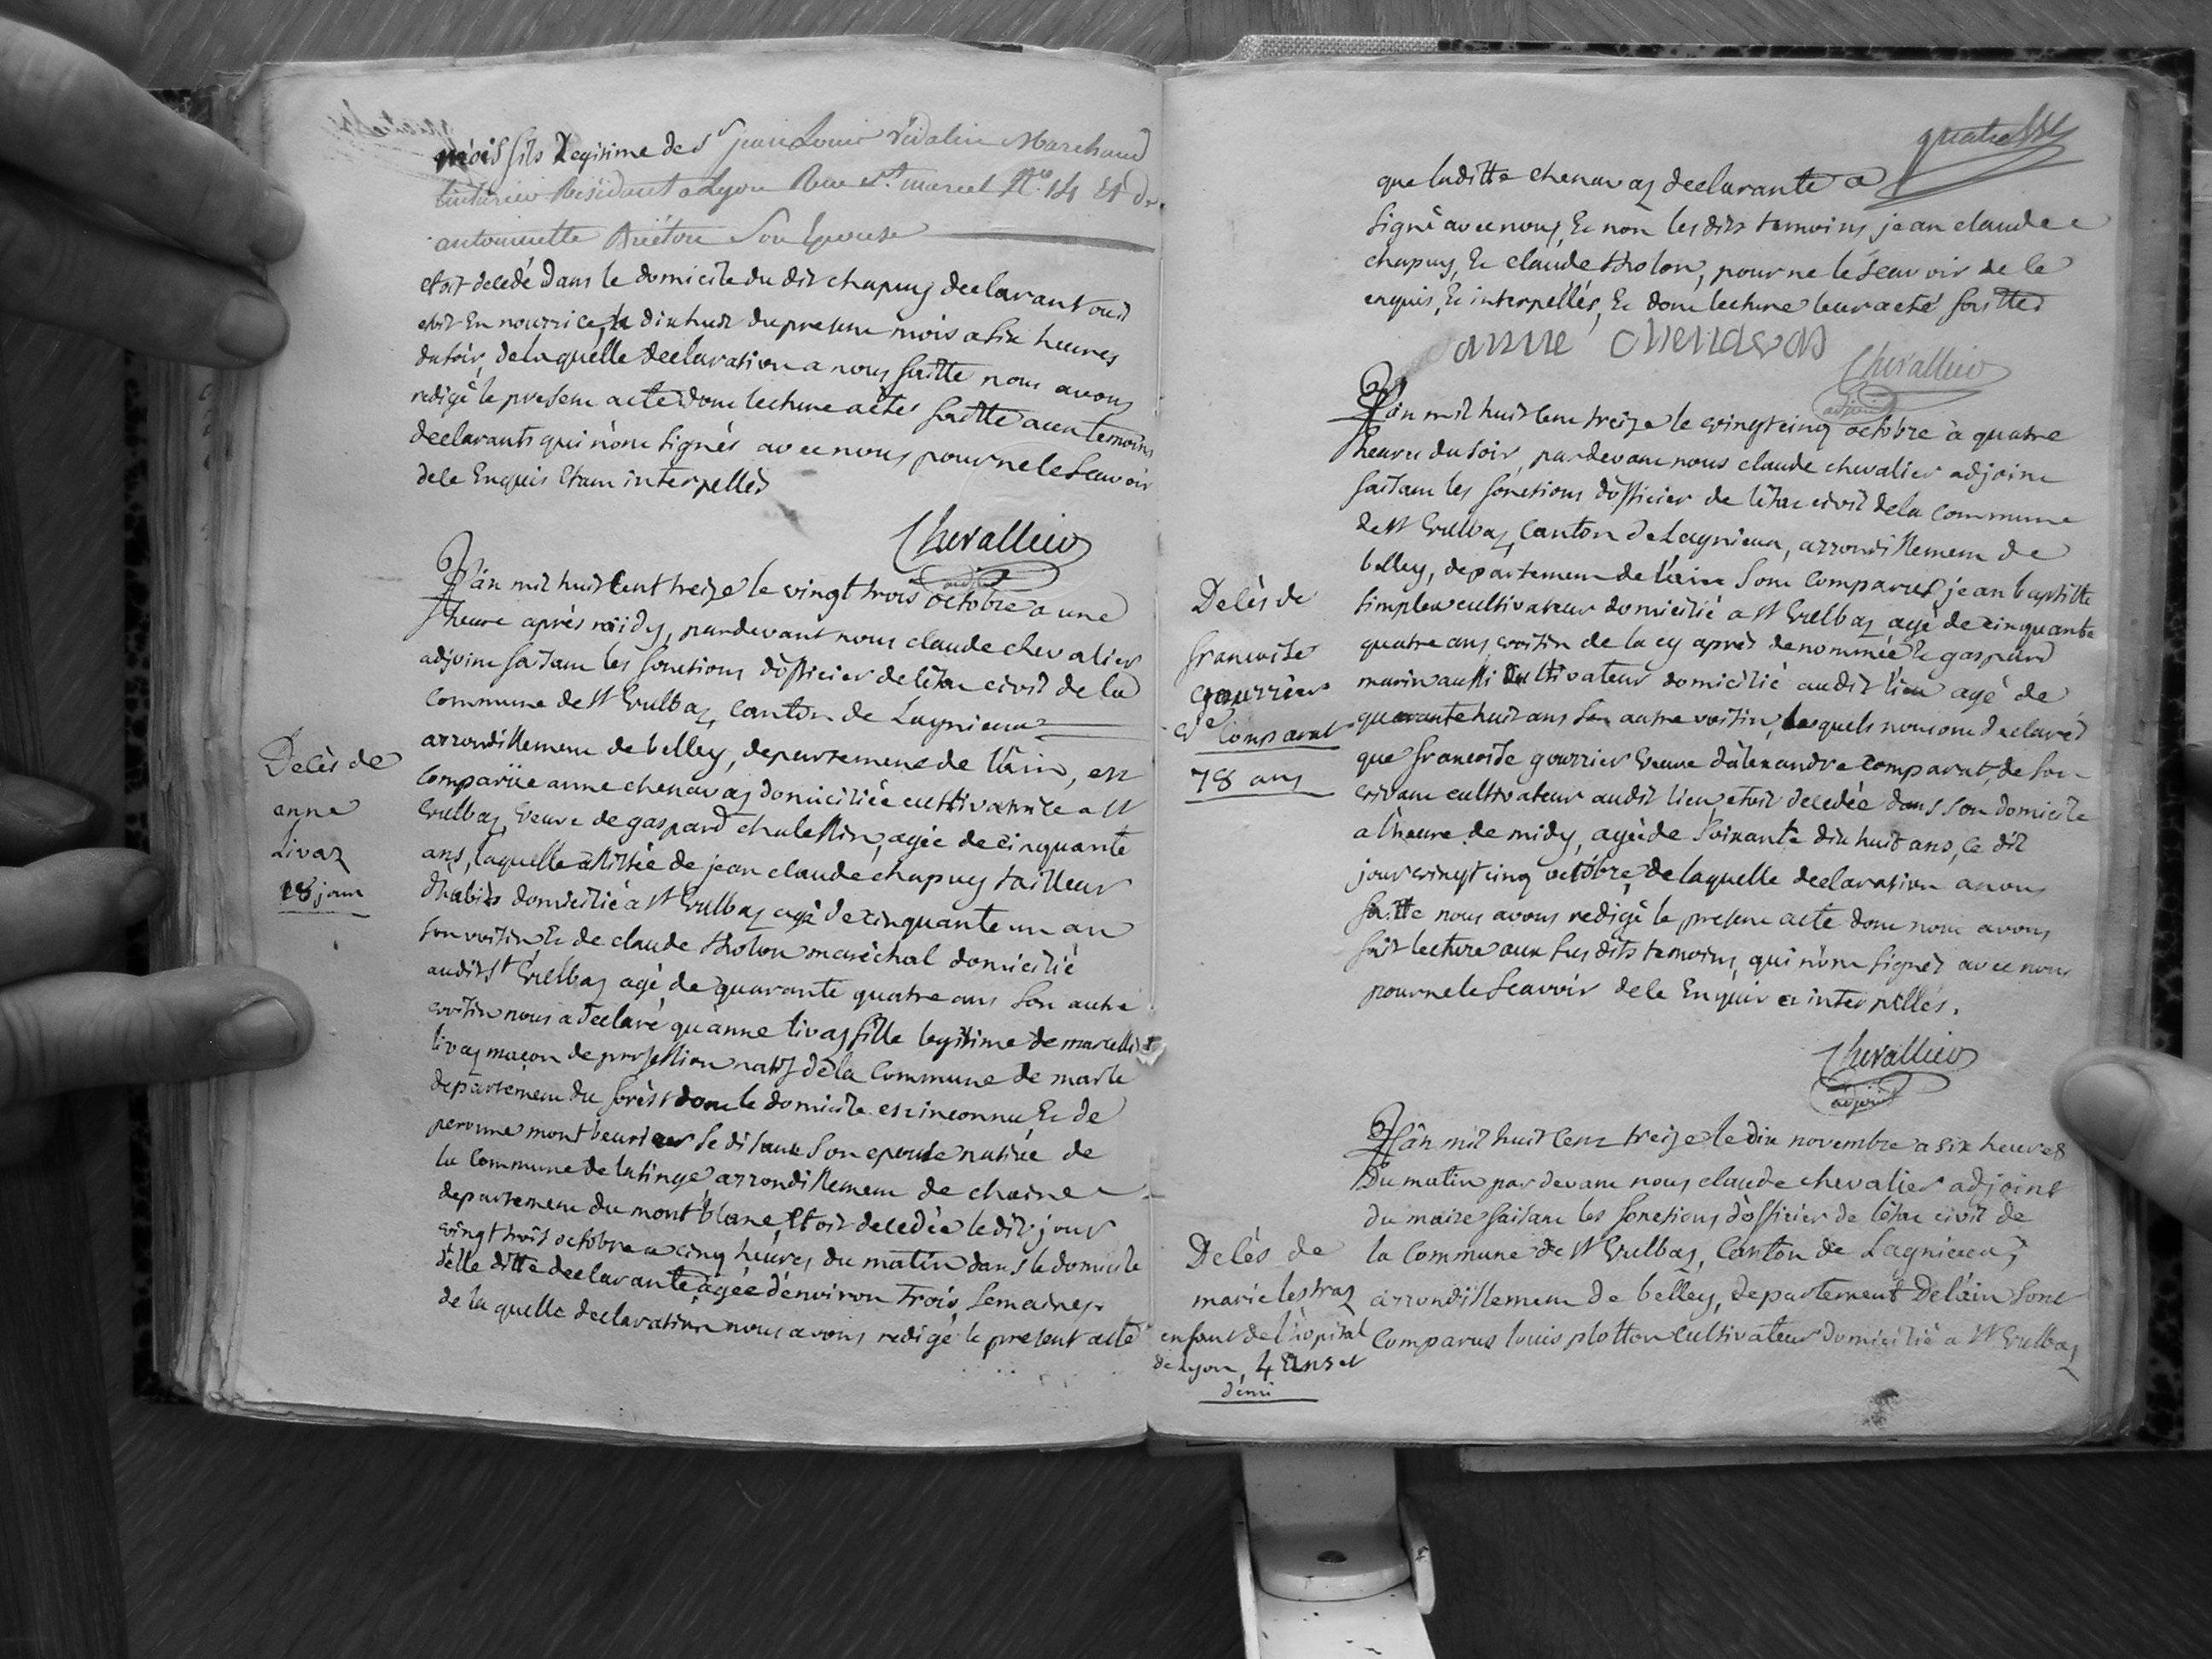 mois fils Legitime de Sr jean Louis Vidalin Marchand
teinturier Residant a Lyon Rue St. marcel No. 14 Et de
antoinette Son Epouse
etoit decedé dans le domicile du dit chapuy declarant ou il
etoit En nourrice, le dix huit du present mois a six heures
du soir, de laquelle declaration a nous faitte nous avons
redigé le present acte dont lecture a êté faitte aux temoins
declarants qui n'ont signés avec nous pour ne le scavoir
de le Enquis Etant interpellés
Chevallier
adjoint
L'an mil huit cent treize le vingt trois octobre a une
heure aprés midy, pardevant nous claude chevalier
adjoint faisant les fonctions d'officier de l'êtat civil de la
commune de St Vulbas, canton de Lagnieux
arrondissement de belley, departement de l'ain, est
comparüe anne chenavas domiciliée cultivatrice a St
Vulbas, veuve de gaspard chalessin, agée de cinquante
ans, laquelle assistée de jean claude chapuy tailleur
d'habits domicilié a St Vulbas agé de cinquante un an
son voisin Et de claude tholon maréchal domicilié
audit St Vulbas agé de quarante quatre ans son autre
voisin nous a declaré qu'anne livas fille legitime de marcellin
livas maçon de profession natif de la commune de marle
departement du forèst dont le domicile est inconnu Et de
peronne montbeurier se disant son epouse native de
la commune de la tinge, arrondissement de
departement du mont blanc, Etoit decedée le dit jour
vingt trois octobre a cinq heures du matin dans le domicile
d'elle ditte declarante, agée d'environ trois semaines
de laquelle declaration nous avons redigé le present acte
Decès de
anne
Livaz
18 jours
quatre
que laditte chenavas declarante a
signé avec nous, Et non les dits temoins jean claude
chapuy, Et claude tholon, pour ne le scavoir de le
enquis, Et interpellés, Et dont lecture leur a eté faitte
anne chenavas
Chevallier
adjoint
L'an mil huit cent treize le vingt cinq octobre à quatre
heures du soir, pardevant nous claude chevalier adjoint
faisant les fonctions d'officier de l'êtat civil de la commune
de St Vulbas, canton de Lagnieux, arrondissement de
belley, departement de l'ain sont comparus jean baptiste
simplex cultivateur domicilié a St Vulbas agé de cinquante
quatre ans, voisin de la cy aprés denommée Et gaspard
marin aussi cultivateur domicilié audit lieu agé de
quarante huit ans son autre voisin, lesquels nous ont declaré
que francoise gourrier veuve d'alexandre comparat, de son
vivant cultivateur audit lieu, etoit decedée dans son domicile
a l'heure de midy, agée de soixante dix huit ans, ce dit
jour vingt cinq octobre, de laquelle declaration a nous
faitte nous avons redigé le present acte dont nous avons
fait lecture aux sus dits temoins, qui n'ont signés avec nous
pour ne le scavoir de le Enquis et interpellés.
Chevallier
adjoint
Decès de
francoise
gourrier
ve Comparat
78 ans
L'ân mil huit cent treize le dix novembre a six heures
Du matin par devant nous claude chevalier adjoint
du maire faisant les fonctions d'officier de l'êtat civil de
la commune de St Vulbas, Canton de Lagnieux,
arrondissement de belley, departement De l'ain sont
Comparus louis plotton cultivateur domicilié a St Vulbas
Decès de
marie lestraz
enfant de l'hopital
de Lyon, 4 ans et
demi